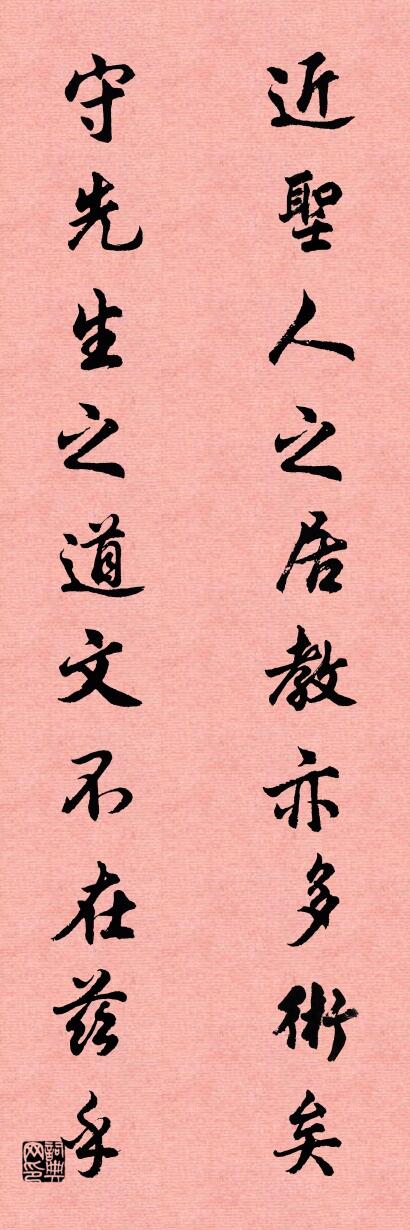 近聖人之居教亦多術矣
守先生之道文不在茲乎
詞典网印